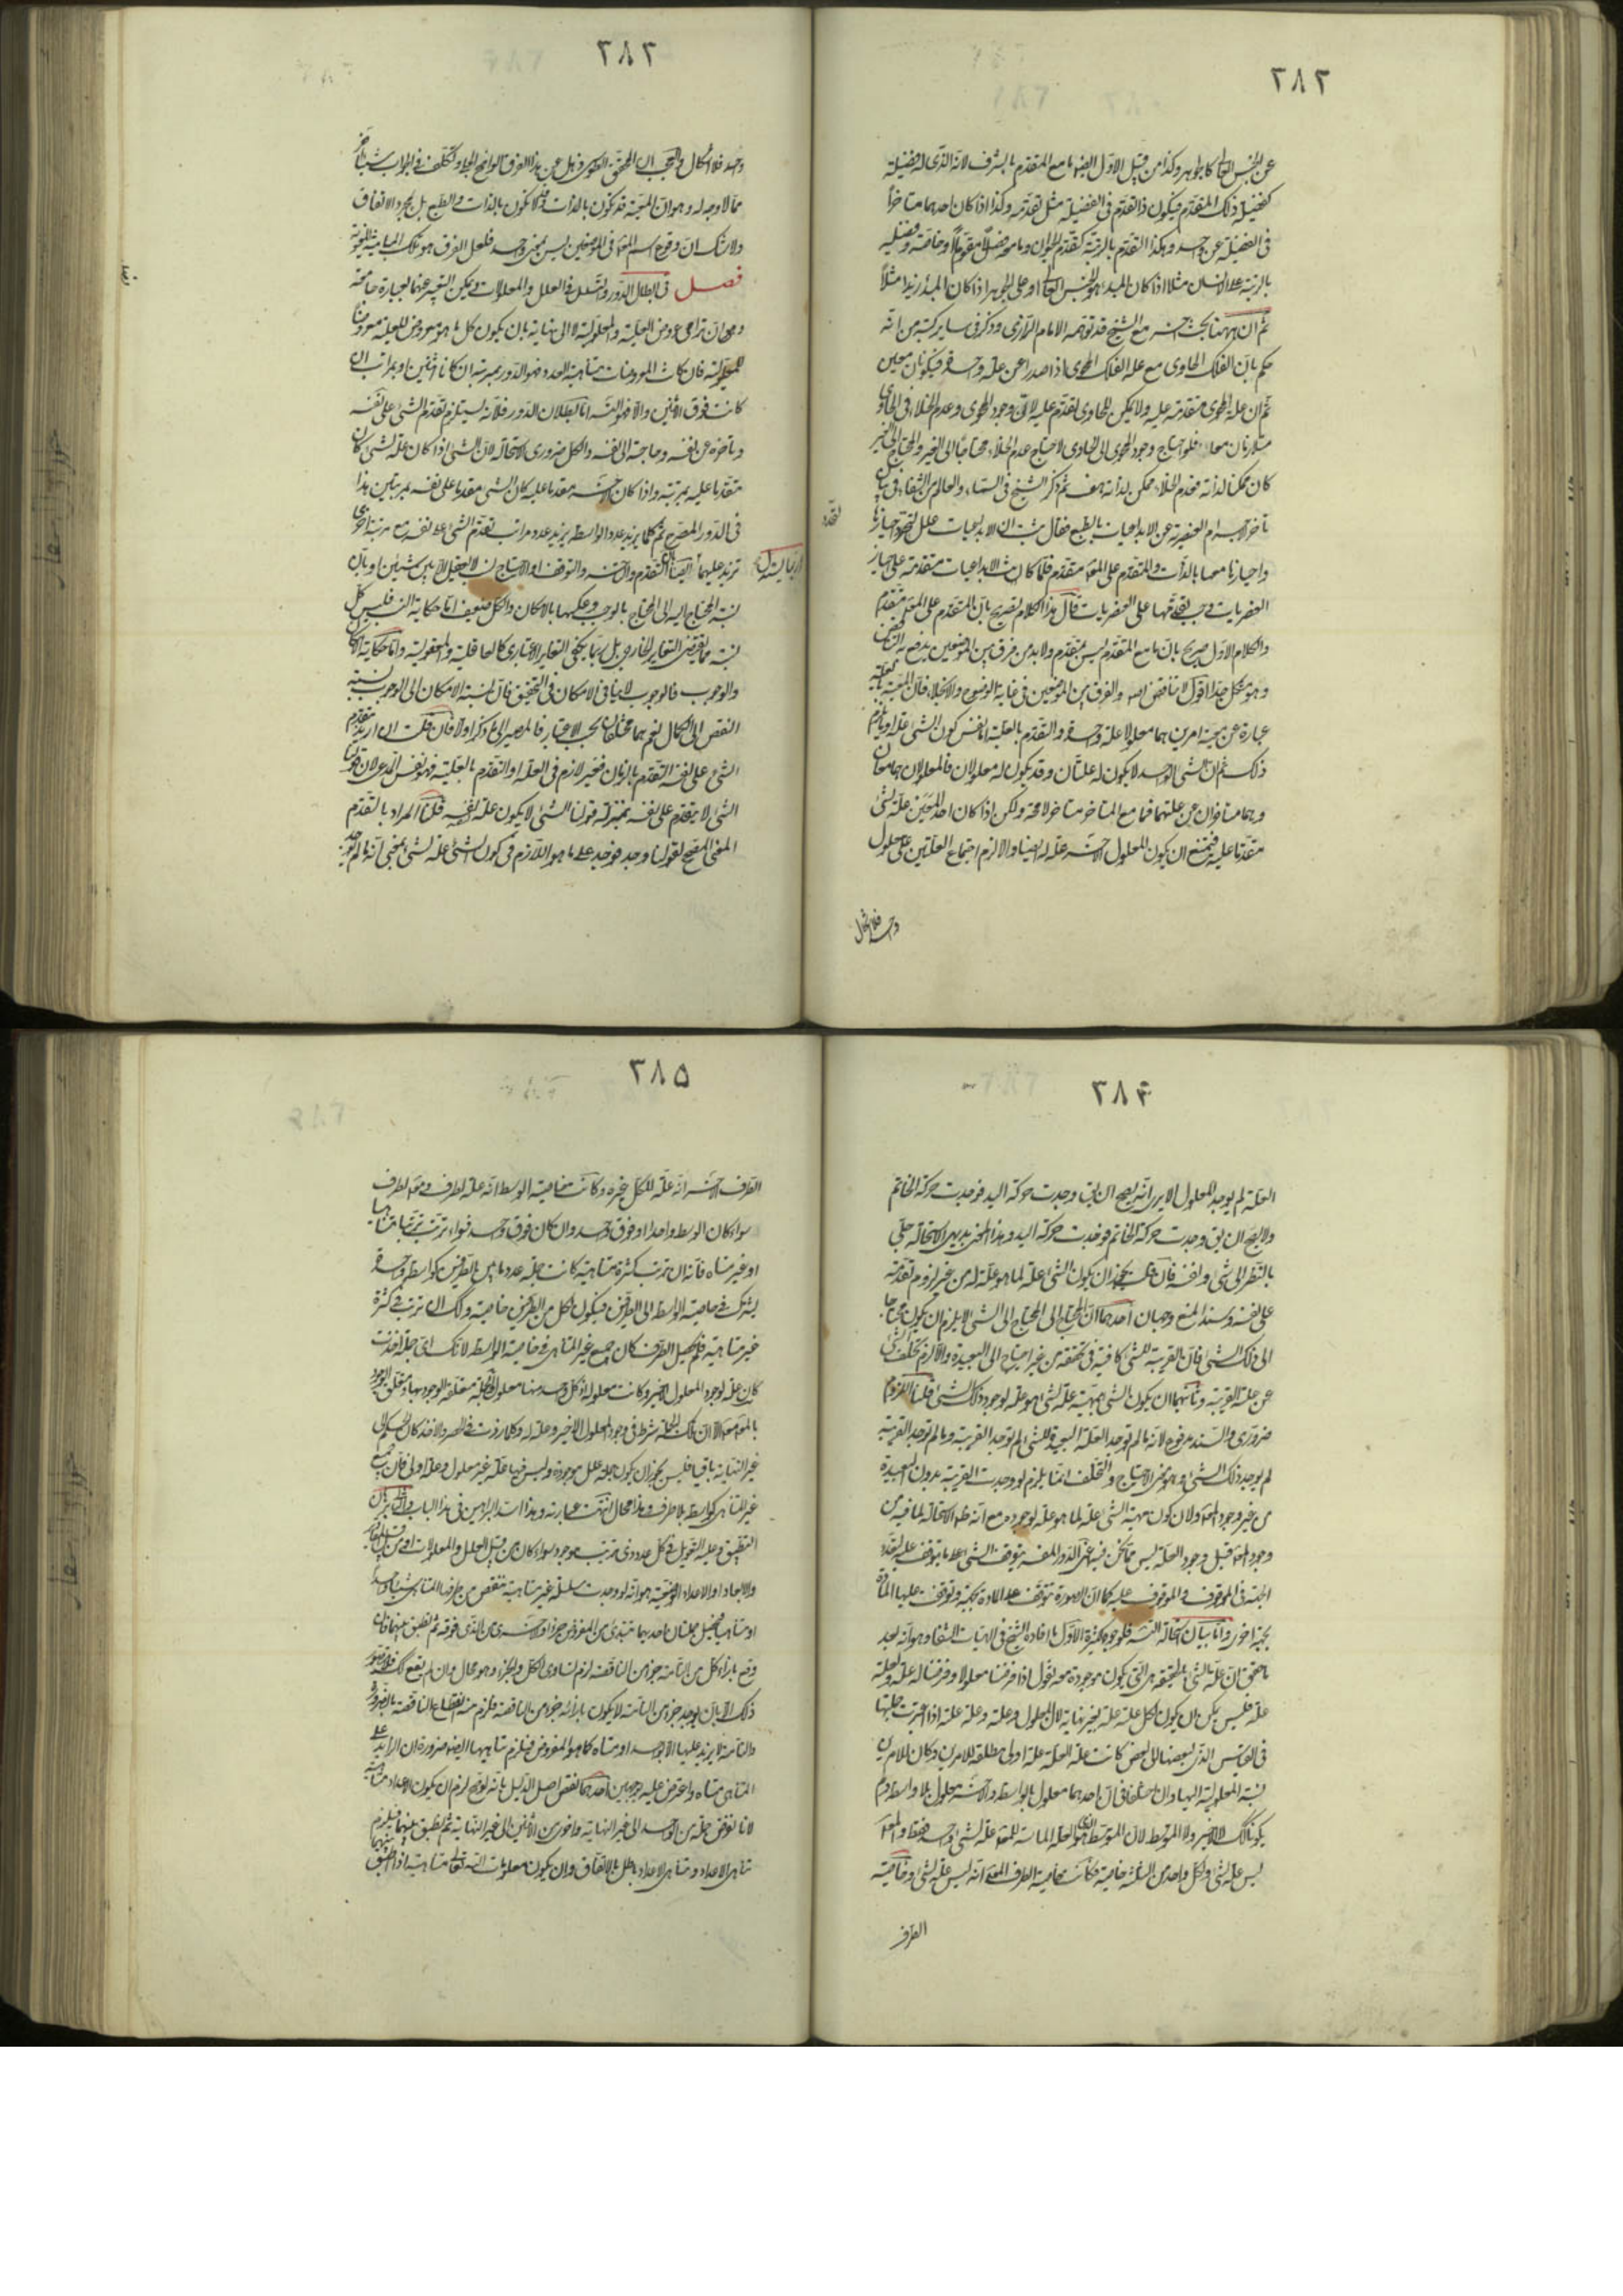 ٢٨٢
عن الجنس العالى كالجوهر وكذا من قبيل الاول ايضا ما مع المتقدم بالشرف لانه الذى له فضيلة
كفضيلة ذلك المتقدم فيكون ذا تقدم فى الفضيلة مثل تقدمه وكذا اذا كان احدهما متاخراً
فى الفضيلة عن واحد وهكذا التقدم بالرتبة كتقدم الحيوان وما معه فصلاً مقوماً او خاصة وفضلية
بالرتبة على الانسان مثلا اذا كان المبدء هو الجنس العالى او على الجوهر اذا كان المبدء زيدا مثلاً
ثم ان ههنا بحث مع الشيخ قد توهمه الامام الرازى وذكر فى ساير كتبه من انه
حكم بان الفلك الحاوى مع علة الفلك المحوى اذا صدرا عن علة واحدة فيكونان معين
ثم ان علة المحوى متقدمة عليه ولا يمكن للحاوى تقدم عليه لان وجود المحوى وعدم الخلاء فى الحاوى
متلازمان معا فلو احتاج وجود المحوى الى الحاوى لاحتاج عدم الخلاء محتاجا الى الغير والمحتاج الى الغير
كان ممكنا لذاته فعدم الخلاء ممكن لذاته هف ثم ذكر الشيخ فى السماء والعالم من الشفاء فى بيان
تاخر الاجرام العنصرية عن الابداعيات بالطبع فقال ثبت ان الابداعيات علل لتحدد احيازها
واحيازنا معها بالذات والمتقدم على المع متقدم فلما كانت الابداعيات متقدمة على احياز
العنصريات وجب تقدمها على العنصريات قال هذا الكلام تصريح بان المتقدم على المع متقدم
والكلام الاول صريح بان ما مع المتقدم ليس متقدم ولا بد من فرق بين الموضعين يدفع به التناقض
وهو مشكل جدا اقول لا تناقض والفرق بين الموضعين فى غاية الوضوح والانجلاء فان المعية بالعلية
عبارة عن معية امرين هما معلولا علة واحدة والتقدم بالعلية اما نفس كون الشئ علة او يلزم
ذلك ثم ان الشئ الواحد لا يكون له علتان وقد يكون له معلولان فالمعلولان هما معان
وهما متاخران عن علتهما فما مع المتاخر متاخر لا محة ولكن اذا كان احد المعين علة لشئ
متقدما عليه فيمتنع ان يكون المعلول الاخر علة له ايضا والا لزم اجتماع العلتين على معلول
واحد فلا اشكال
٢٨٣
واحد فلا اشكال والعجب ان المحقق الطوسى ذهل عن هذا الفرق الواضح الجلى وتكلف فى الجواب شيئا اخر
مما لا وجه له وهو ان المعية قد تكون بالذات وقد لا تكون بالذات والطبع بل بمجرد الاتفاق
ولا شك ان وقوع اسم المع فى الموضعين ليس بمعنى واحد فلعل الفرق هو تلك المباينة المعنوية
فصل فى ابطال الدور والتسلسل فى العلل والمعلولات ويمكن التعبير عنهما بعبارة جامعة
وهى ان تراقى عروض العلية والمعلولية لا الى نهاية بان يكون كل ما هو معروض للعلية معروضاً
للمعلولية فان كانت المعروضات متناهية العدد فهو الدور بمرتبة ان كانا اثنين او بمراتب ان
كانت فوق الاثنين والا فهو التسلسل اما بطلان الدور فلانه يستلزم تقدم الشئ على نفسه
وتاخره عن نفسه وحاجته الى نفسه والكل ضرورى الاستحالة لان الشئ اذا كان علة لشئ كان
متقدما عليه بمرتبة واذا كان الاخر متقدما عليه كان الشئ متقدما على نفسه بمرتبتين هذا
فى الدور المصرح ثم كلما يزيد عدد الواسطه يزيد عدد مراتب تقدم الشئ على نفسه مع مرتبة اخرى
تزيد عليهما ايضا التقدم والتاخر والتوقف او الاحتياج نسب لا تعقل الا بين شيئين او بان
نسبة المحتاج اليه الى المحتاج بالوجوب وعكسها بالامكان والكل ضعيف اما حكاية النسب فليس كل
نسبة مما يقتضى التغاير الخارجى بل ربما يكفى التغاير الاعتبارى كالعاقلية والمعقولية واما حكاية الامكان
والوجوب فالوجوب لا ينافى الامكان فى التحقيق فان نسبة الامكان الى الوجوب نسبة
النقص الى الكمال نعم هما مختلفان بحسب الاعتبار فالمصير الى ما ذكر اولا فان قلت ان اريد بتقدم
الشئ على نفسه التقدم بالزمان فغير لازم فى العلة او التقدم بالعلية فهو نفس المدعى لان قولنا
الشئ لا يتقدم على نفسه بمنزلة قولنا الشئ لا يكون علة لنفسه قلنا المراد بالتقدم
المعنى المصحح لقولنا وجد فوجد على ما هو اللازم فى كون الشئ علة لشئ بمعنى انه ما لم يوجد
٢٨٤
العلة لم يوجد المعلول الا يرى انه يصح ان يقال وجدت حركة اليد فوجدت حركة الخاتم
ولا يصح ان يق وجدت حركة الخاتم فوجدت حركة اليد وهذا المعنى بديهى الاستحالة حلى
بالنظر الى شئ ونفسه فان قلت يجوز ان يكون الشئ علة لما هو علة له من غير لزوم تقدمه
على نفسه وسند المنع وجهان احدهما ان المحتاج الى المحتاج الى الشئ لا يلزم ان يكون محتاجا
الى ذلك الشئ فان القريبة للشئ كافية فى تحققه من غير احتياج الى البعيدة والا لزم تخلف الشئ
عن علته القريبة وثانيهما ان يكون الشئ بمهيته علة لشئ هو علة لوجود ذلك الشئ قلنا اللزوم
ضرورى والسند مرفوع لانه ما لم توجد العلة البعيدة للشئ لم توجد القريبة وما لم توجد القريبة
لم يوجد ذلك الشئ وهو معنى الاحتياج والتخلف انما يلزم لو وجدت القريبة بدون البعيدة
من غير وجود المع ولان كون مهية الشئ علة لما هو علة لوجوده مع انه ظاهر الاستحالة لما فيه من
وجود المع قبل وجود العلة ليس مما نحن فيه اعنى الدور المفسر بتوقف الشئ على ما يتوقف عليه لتعدد
الجهة فى الموقوف والموقوف عليه كما ان الصورة تتوقف على المادة بجهة وتتوقف عليها المادة
بجهة اخرى واما بيان استحالة التسلسل فلوجوه كثيرة الاول ما افاده الشيخ فى الهيات الشفا وهو انه بعد
ما حقق ان علة الشئ بالحقيقة هى التى يكون موجودة معه نقول اذا فرضنا معلولا وفرضنا له علة ولعلته
علة فليس يمكن ان يكون لكل علة علة بغير نهاية لان المعلول وعلته وعلة علته اذا اعتبرت جملتها
فى القياس الذى لبعضها الى بعض كانت علة العلة علة اولى مطلقة للامرين وكان للامرين
نسبة المعلولية اليها وان اختلفا فى ان احدهما معلول بالواسطة والاخر معلول بلا واسطة ولم
يكونا كذلك لا الاخير ولا المتوسط لان المتوسط الذى هو العلة المماسة للمع علة لشئ واحد فقط والمع
ليس علة لشئ ولكل واحد من الثلثة خاصية فكانت خاصية الطرف المع انه ليس علة لشئ وخاصية
الطرف
٢٨٥
الطرف الاخر انه علة للكل غيره وكانت خاصية الوسط انه علة لطرف ومع لطرف
سواء كان الوسط واحدا او فوق واحد وان كان فوق واحد فسواء ترتب ترتباً متناهيا
او غير متناه فانه ان ترتب كثرة متناهية كانت جملة عدد ما بين الطرفين كواسطة واحدة
يشترك فى خاصية الواسطة الى الطرفين فيكون لكل من الطرفين خاصية وكذلك ان ترتب فى كثرة
غير متناهية فلم يحصل الطرف كان جميع غير المتناهى فى خاصية الواسطة لانك اى جملة اخذت
كانت علة لوجود المعلول الاخير وكانت معلولة اذ كل واحد منها معلول والجملة متعلقة الوجود بها ومتعلق الوجود
بالمع مع الا ان تلك الجملة شرط فى وجود المعلول الاخير وعلة له وكلما زدت فى الحصر والاخذ كان الحكم الى
غير النهاية باقيا فليس يجوز ان يكون جملة علل موجودة وليس فيها علة غير معلولة وعلة اولى فان جميع
غير المتناهى كواسطة بلا طرف وهذا محال انتهت عبارته وهذا اسد البراهين فى هذا الباب والثانى برهان
التطبيق وعليه التعويل فى كل عدد ذى ترتيب موجود سواء كان من قبيل العلل والمعلولات او من قبيل المقادير
والابعاد او الاعداد الوضعية هو انه لو وجدت سلسلة غير متناهية ننقص من طرفها المتناهى شيئا واحدا
او متناهيا فيحصل جملتان احديهما تبتدى من المفروض جزءا والاخرى من الذى فوقه ثم نطبق بينهما فان
وقع بازاء كل من التامة جزء من الناقصة لزم تساوى الكل والجزء وهو محال وان لم يقع كذلك فلا يتصور
ذلك الا بان يوجد جزء من التامة لا يكون بازائه جزء من الناقصة فلزم منه انقطاع الناقصة بالضرورة
والتامة لا يزيد عليها الا بواحد او متناه كما هو المفروض فيلزم تناهيها ايضا ضرورة ان الزائد على
المتناهى متناه واعترض عليه بوجهين احدهما نقض اصل الدليل بانه لو صح لزم ان يكون الاعداد متناهية
لانا نفرض جملة من الواحد الى غير النهاية واخرى من الاثنين الى غير النهاية ثم نطبق بينهما فيلزم
تناهى الاعداد وتناهى الاعداد باطل بالاتفاق وان يكون معلومات الله تعالى متناهية اذا طبق